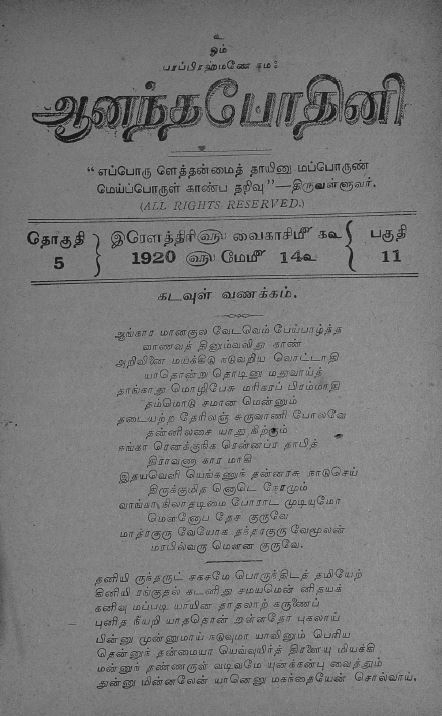 உ
ஓம்
பரப்பிரஹ்மணே நம:
ஆனந்தபோதினி
“எப்பொரு ளெத்தன்மைத் தாயினு மப்பொருண்
மெய்ப்பொருள் காண்ப தறிவு”—திருவள்ளுவர்.
(ALL RIGHTS RESERVED.)
தொகுதி 5
இரௌத்திரி௵ வைகாசி௴ ௧௳
1920 ௵ மே௴ 14௳
பகுதி 11
கடவுள் வணக்கம்.
ஆங்கார மானகுல வேடவெம் பேய்பாழ்த்த
வாணவத் தினும்வலிது காண்
அறிவினை மயக்கிடு நடுவறிய வொட்டாதி
யாதொன்று தொடினு மதுவாய்த்
தாங்காது மொழிபேசு மரிகரப் பிரம்மாதி
தம்மொடு சமான மென்னும்
தடையற்ற தேரிலஞ் சுருவாணி போலவே
தன்னிலசை யாது நிற்கும்
ஈங்கா ரெனக்குநிக ரென்னப்ர தாபித்
திராவணா கார மாகி
இதயவெளி யெங்கணுந் தன்னரசு நாடுசெய்
திருக்குமித னொடெ நேரமும்
வாங்காநிலாதடிமை போராட முடியுமோ
மௌனோப தேச குருவே
மந்த்ரகுரு வேயோக தந்த்ரகுரு வேமூலன்
மரபில்வரு மௌன குருவே.
தனியி ருந்தருட் சகசமே பொருந்திடத் தமியேற்
கினியி ரங்குதல் கடனிது சமயமெ னிதயக்
கனிவு மப்படி யாயின தாதலாற் கருணைப்
புனித நீயறி யாததொன் றுள்ளதோ புகலாய்
பின்னு முன்னுமாய் நடுவுமா யாவினும் பெரிய
தென்னுந் தன்மையா யெவ்வுயிர்த் திரளையு மியக்கி
மன்னுந் தண்ணருள் வடிவமே யுனக்கன்பு வைத்தும்
துன்னு மின்னலேன் யானெனு மகந்தையேன் சொல்வாய்.